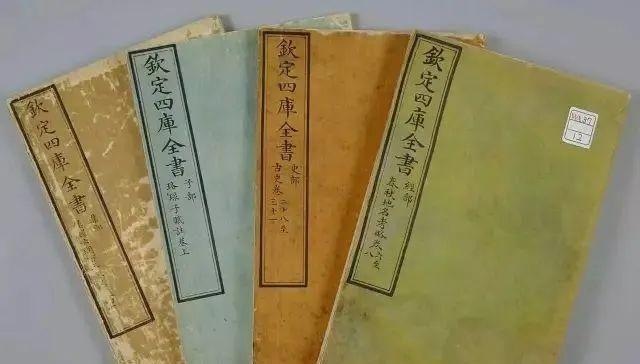 欽定四庫全書
集部
欽定四庫全書
子部
珞琭子賦註卷上
欽定四庫全書
史部
古史卷二十八至
三十一
欽定四庫全書
經部
春秋地名考略卷六至
八
WA37
12